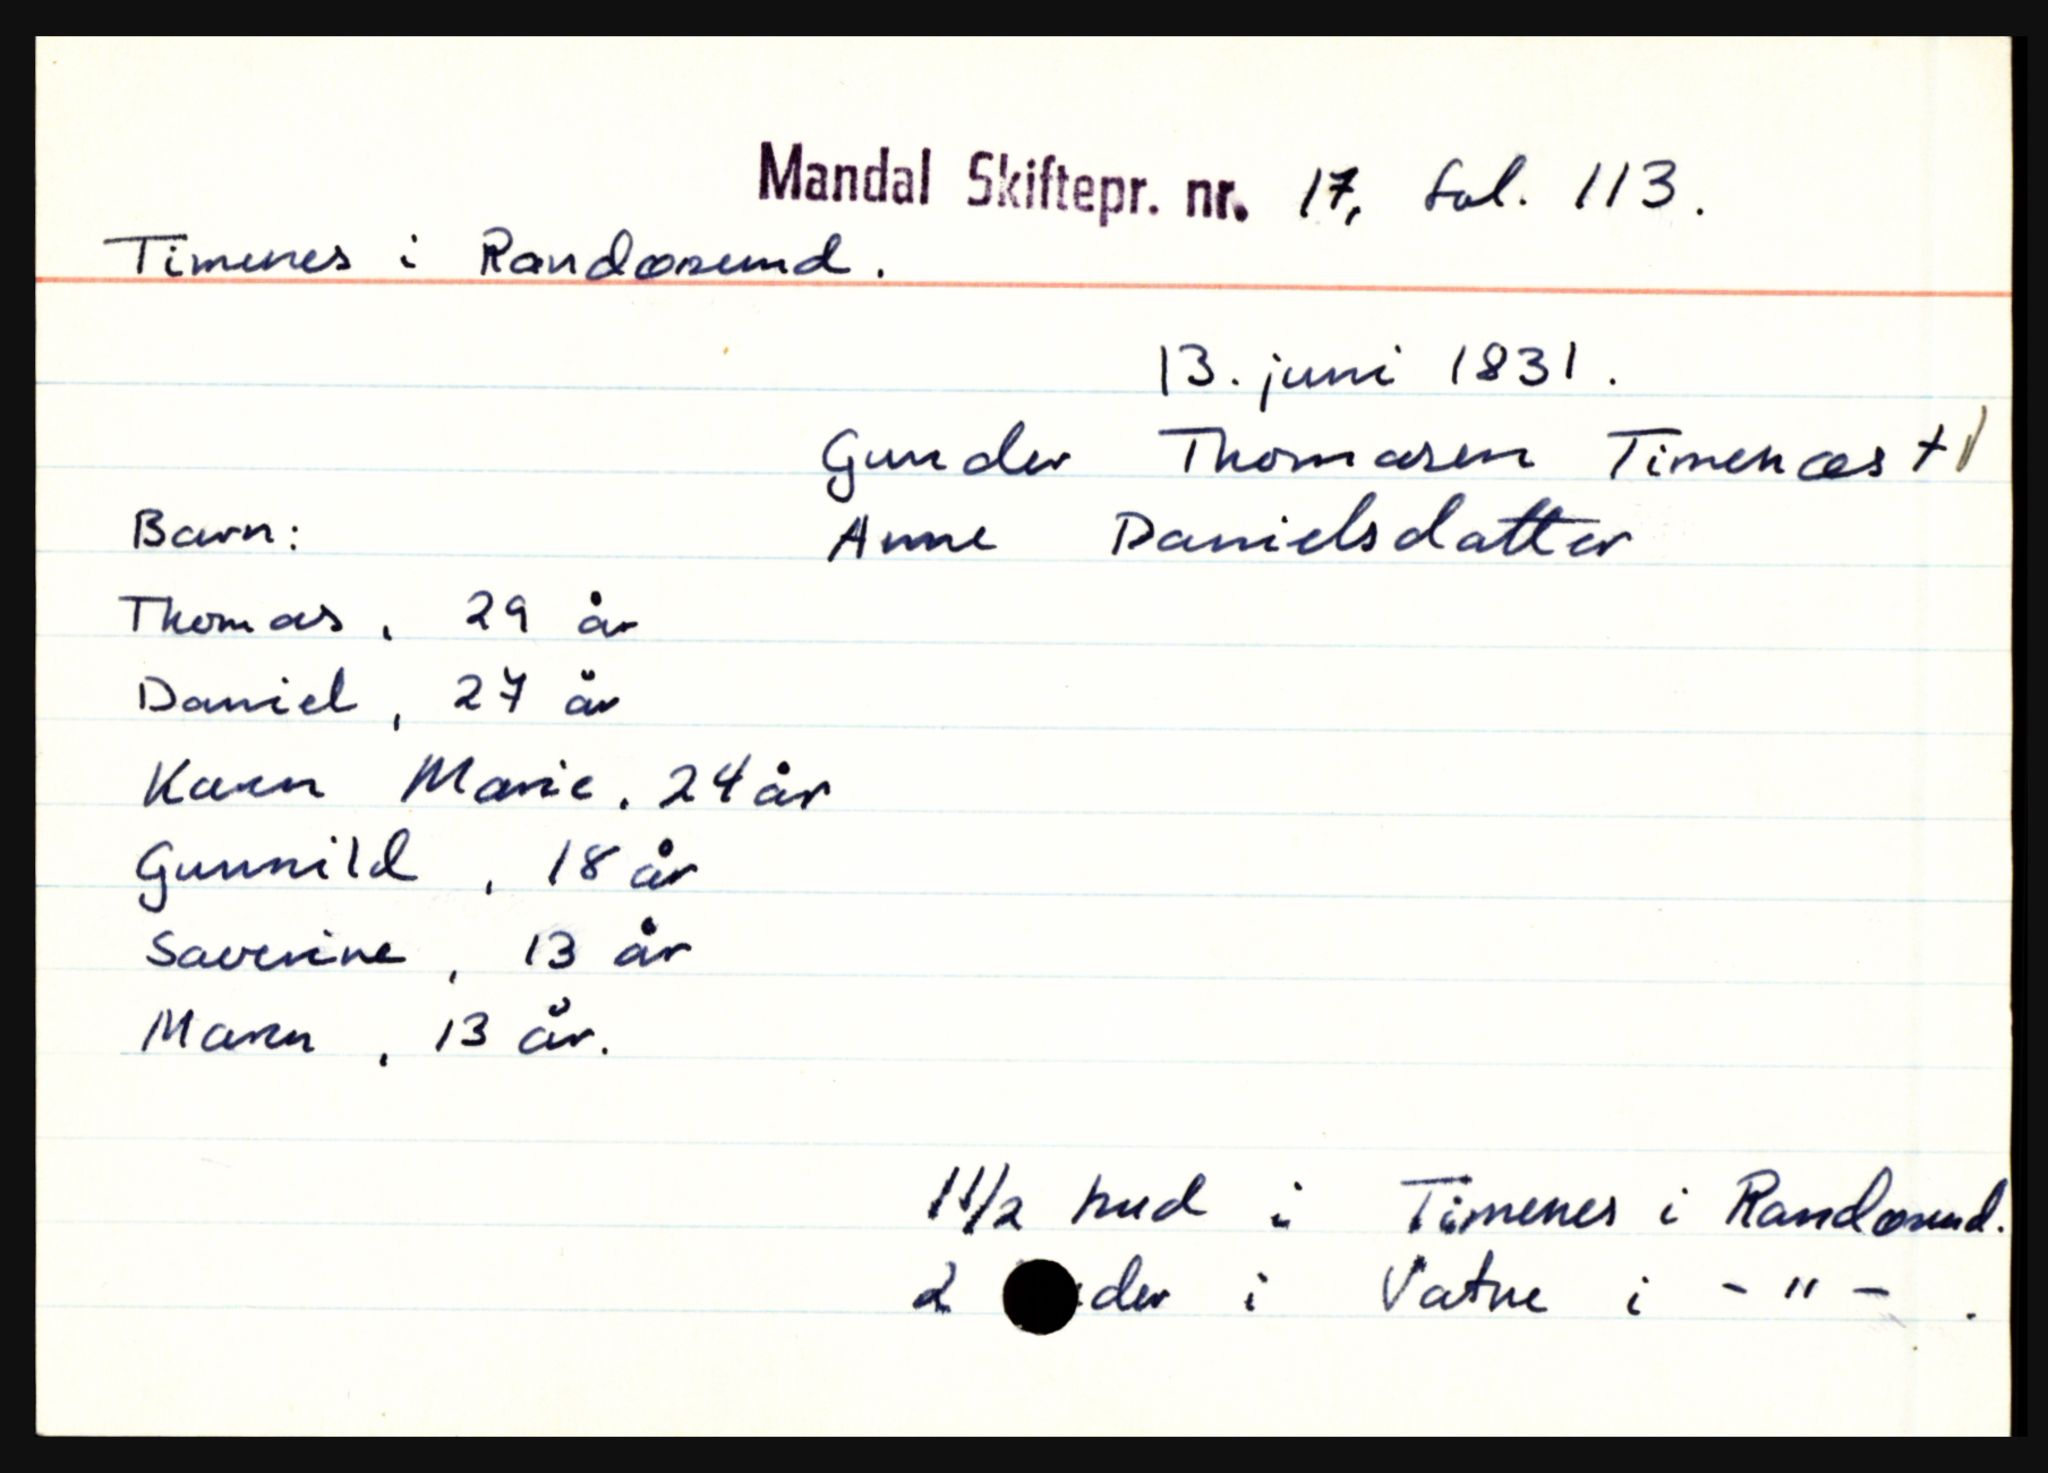 Mandal Skiftepr. nr. 17, fol. 113.
Timenes i Randøsund.
13. juni 1831.
Gunder Thomasen Timenæs +
Barn: Anne Danielsdatter
Thomas, 29 år
Daniel, 27 år
Karen Marie, 24 år
Gunnild, 18 år
Saverine, 13 år
Maren, 13 år.
1 1/2 hud i Timenes i Randøsund.
2 der i Vatne i - " - .